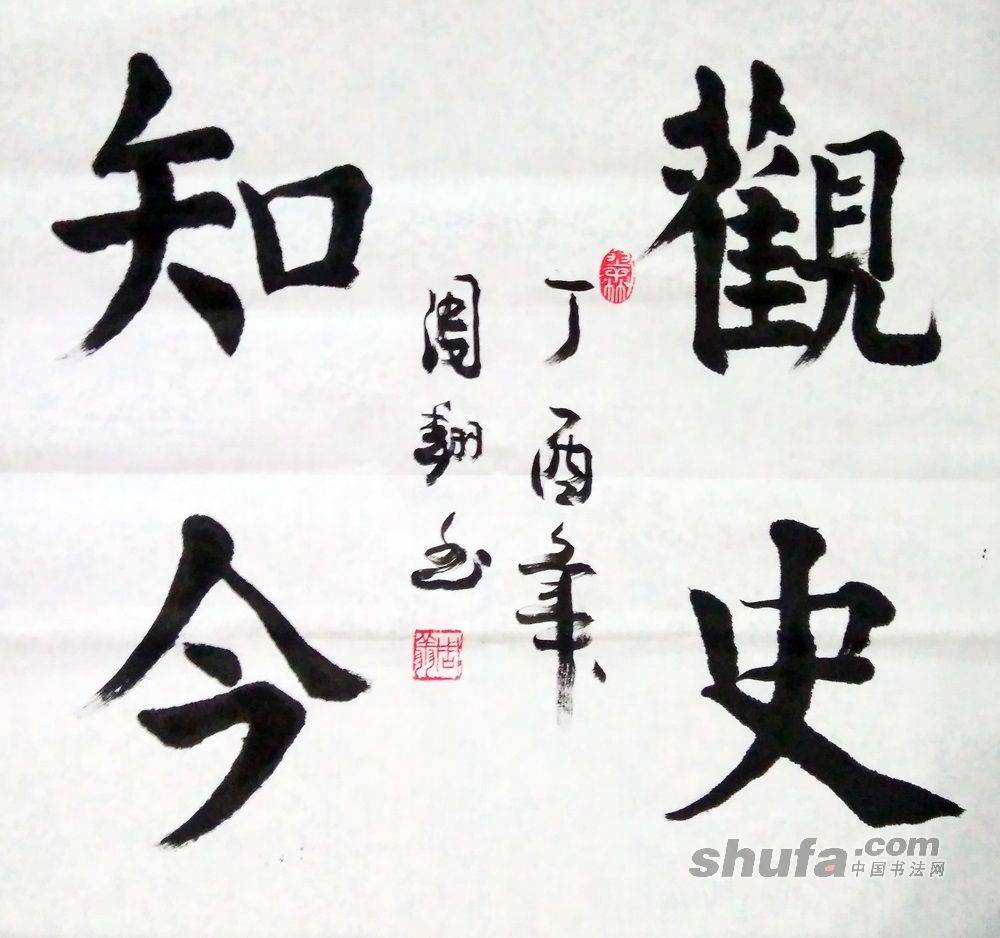 觀史
丁酉年
周
知今
shufa.com
中国书法网